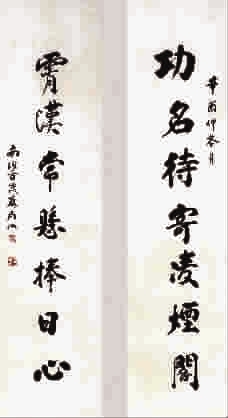 辛酉仲
功名待寄淩煙閣
霄漢常懸捧日心